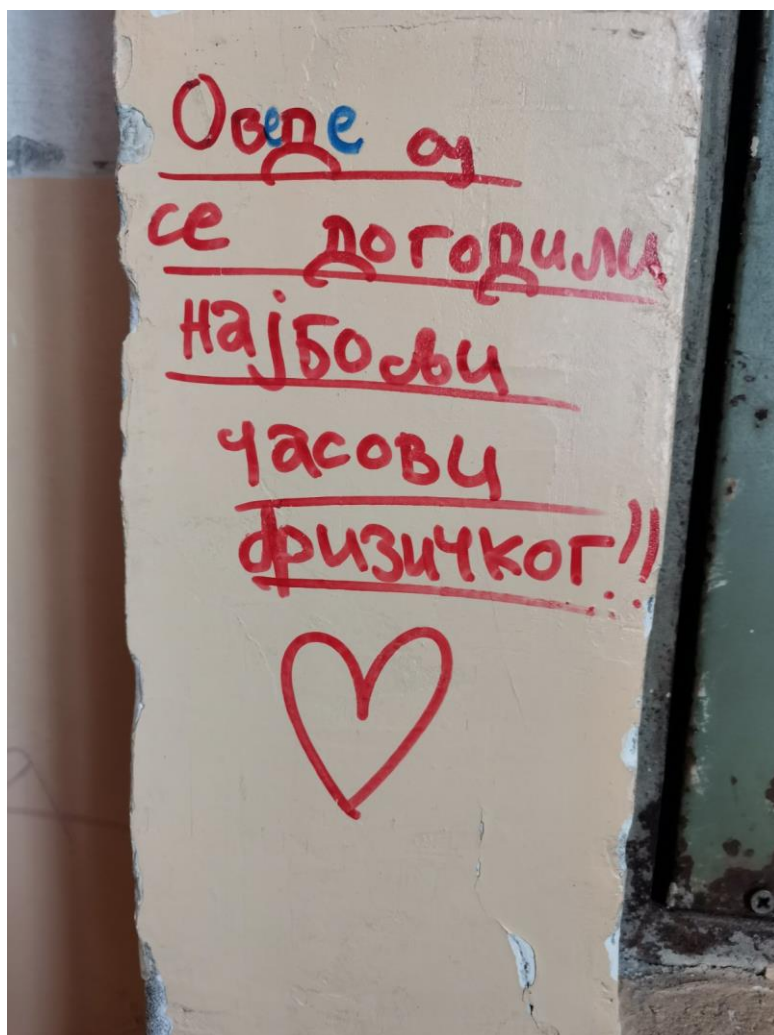 Оведе су
се догодили
најбољи
часови
физичког!!